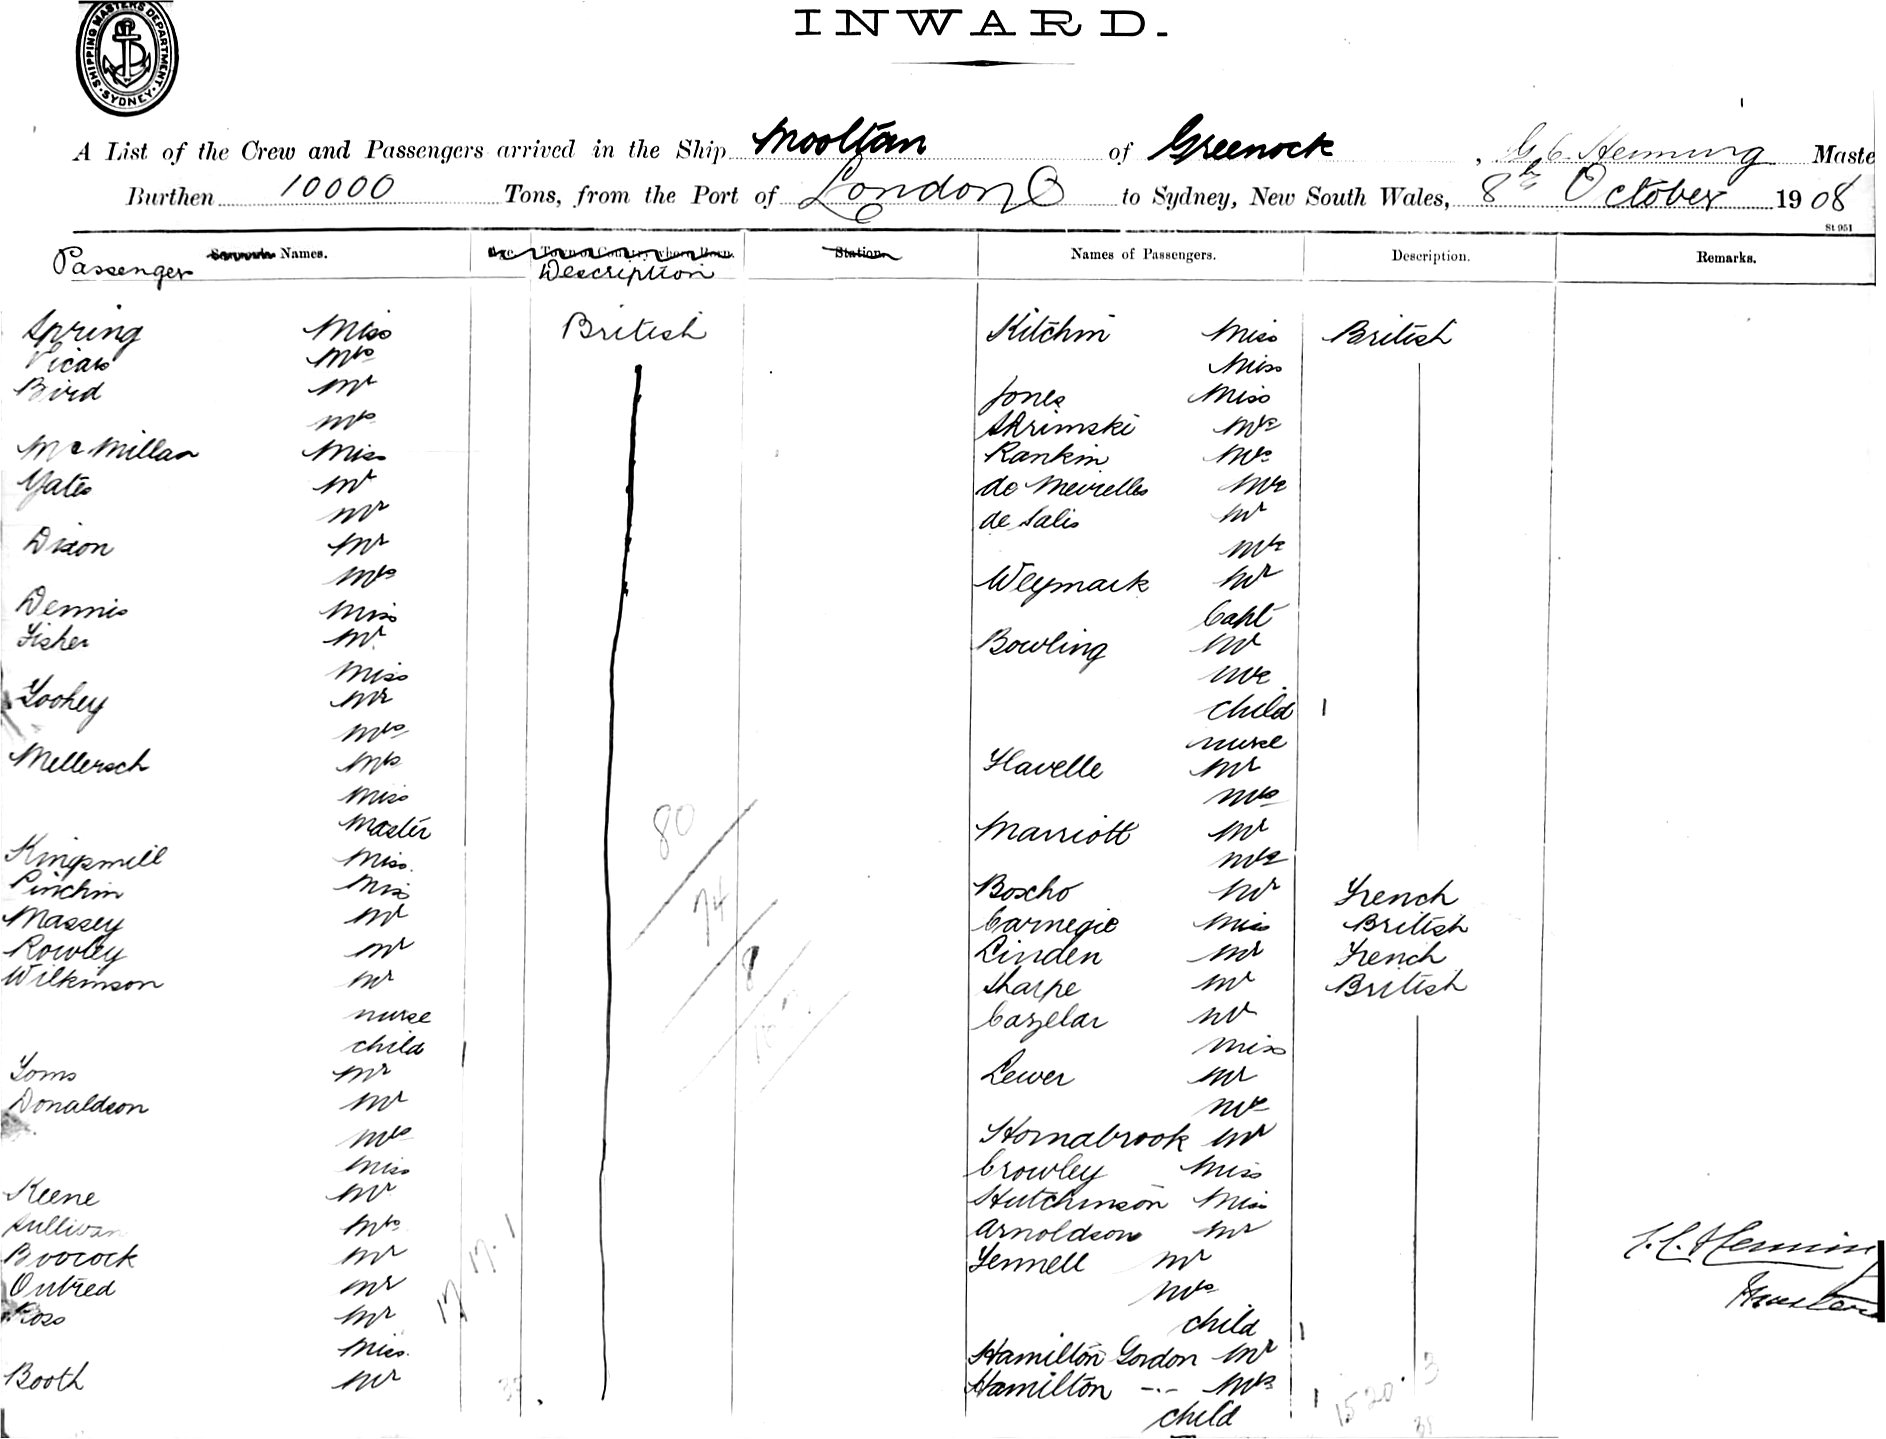 SHIPPING MASTERS DEPARTMENT. SYDNEY
INWARD.
A List of the Crew and Passengers arrived in the Ship Mooltan of Greenock, G C Henning Maste
Burthen 10000 Tons, from the Port of London to Sydney, New South Wales, 8th October 1908
St 951
Passenger Names. Age Town or Country where Born. Description Station Names of Passengers. Description. Remarks.
Spring Miss British
Vicars Mrs
Bird Mr
Mrs
McMillan Miss
Yates Mr
Mr
Dixon Mr
Mrs
Dennis Miss
Fisher Mr
Miss
Toohey Mr
Mrs
Mellersch Mrs
Miss
Master
Kingsmill Miss.
Pinchin Miss
Massey Mr
Rowley Mr
Wilkinson Mr
nurse
child 1
Toms Mr
Donaldson Mr
Mrs
Miss
Keene Mr
Sullivan Mrs
Boocock Mr
Outred Mr
Ross Mr
Miss.
Booth Mr
80
74
8
17. 1
17
Kitchin Miss British
Miss
Jones Miss
Skrimski Mrs
Rankin Mrs
de Meirelles Mrs
de Salis Mr
Mrs
Weymark Mr
Capt
Bowling Mr
Mrs
child 1
nurse
Flavelle Mr
Mrs
Marriott Mr
Mrs
Boscho Mr French
Carnegie Miss British
Linden Mr French
Sharpe Mr British
Cazelar Mr
Miss
Lewer Mr
Mrs
Hornabrook Mr
Crowley Miss
Hutchinson Miss
Arnoldson Mr
Fennell Mr
Mrs
child 1
Hamilton Gordon Mr
Hamilton -.- Mrs
child 1
15 20. 3
G. C. Henning